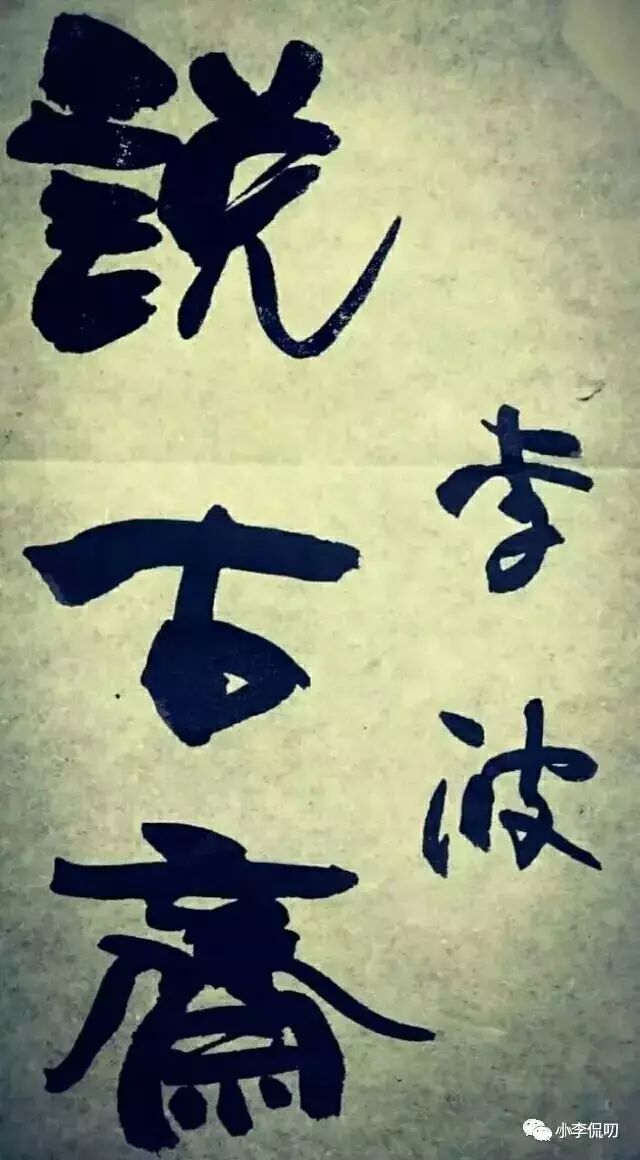 李波
説古齋
小李侃叨